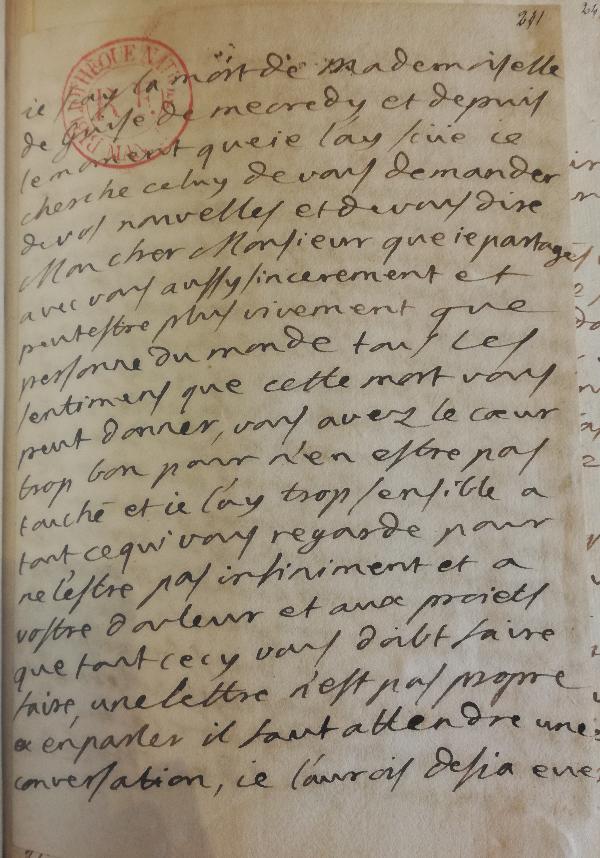 241
ie scay la mort de mademoiselle
de Guise de mecredy et depuis
le moment que ie l'ay sceue ie
cherche celuy de vous demander
de vos nouvelles et de vous dire
Mon cher Monsieur que ie partage
avec vous aussy sincerement et
peutestre plus vivement que
personne du monde tous les
sentimens que cette mort vous
peut donner, vous avez le cœur
trop bon pour n'en estre pas
touché et ie l'ay trop sensible a
tout ce qui vous regarde pour
ne l'estre pas infiniment et a
vostre douleur et aux proiets
que tout cecy vous doibt faire
faire, une lettre n'est pas propre
a en parler il faut attendre une
conversation, ie l'aurois desia eue